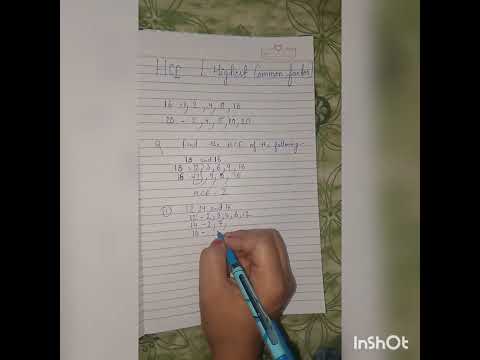 HCF | Highest Common factor
16 - 1, 2, 4, 8, 16
20 - 2, 4, 5, 10, 20
Q Find the HCF of the following:-
18 and 16
18 - 2, 3, 6, 9, 18
16 2, 4, 8, 16
HCF = 2
12, 14 and 16
12 - 2, 3, 4, 6, 12
14 - 2, 7,
16 -
InShOt